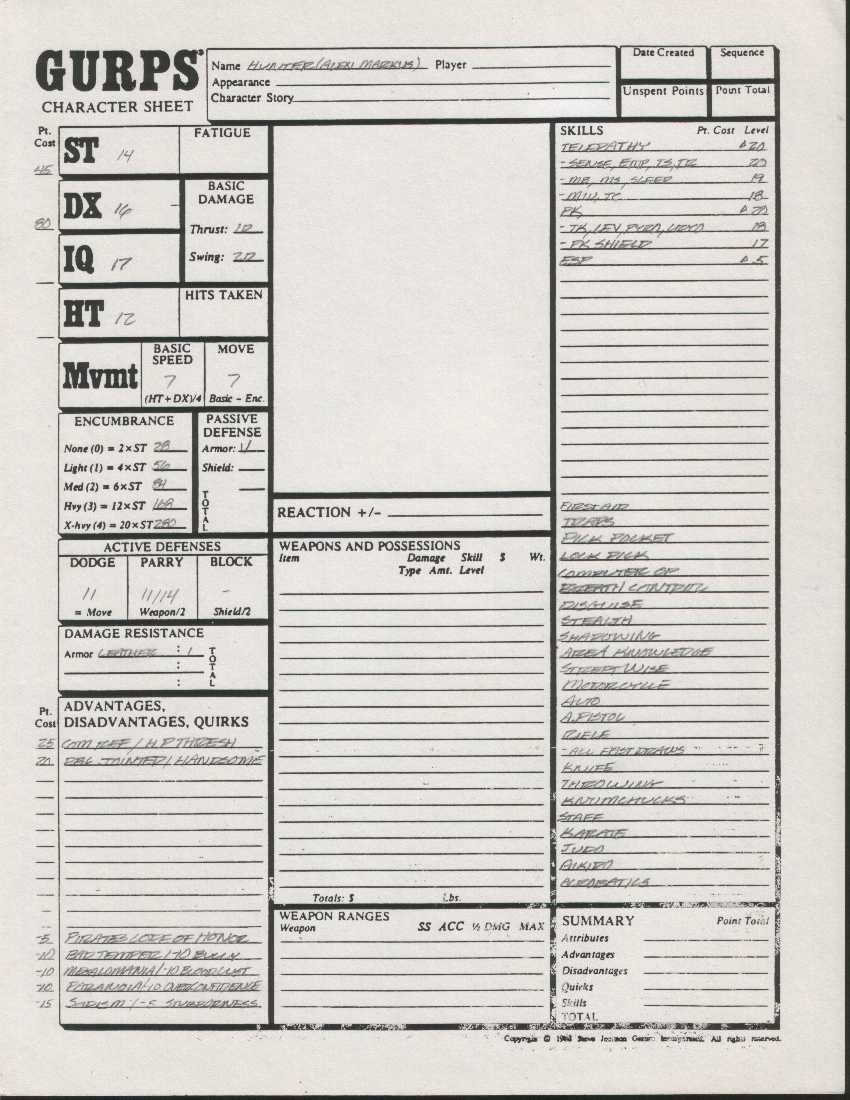 GURPS®
CHARACTER SHEET
Name HUNTER (ALEXI MARKUS) Player
Appearance
Character Story
Date Created
Sequence
Unspent Points
Point Total
Pt. Cost
ST 14
FATIGUE
45
DX 16
BASIC DAMAGE
Thrust: 1D
80
IQ 17
Swing: 2D
HT 12
HITS TAKEN
Mvmt
BASIC SPEED
7
(HT + DX)/4
MOVE
7
Basic - Enc.
ENCUMBRANCE
None (0) = 2×ST 28
Light (1) = 4×ST 56
Med (2) = 6×ST 84
Hvy (3) = 12×ST 168
X-hvy (4) = 20×ST 280
PASSIVE DEFENSE
Armor: 1/
Shield:
TOTAL
ACTIVE DEFENSES
DODGE
11
= Move
PARRY
11/14
Weapon/2
BLOCK
-
Shield/2
DAMAGE RESISTANCE
Armor LEATHER : 1
:
:
TOTAL
Pt. Cost
ADVANTAGES,
DISADVANTAGES, QUIRKS
25 COM REF / H.P THRESH
20 DBL JOINTED / HANDSOME
-5 PIRATES CODE OF HONOR
-10 BAD TEMPER / -10 BULLY
-10 MEGALOMANIA / -10 BLOODLUST
-10 PARANOIA / -10 OVERCONFIDENCE
-15 SADISM / -5 STUBBORNESS
REACTION +/-
WEAPONS AND POSSESSIONS
Item Damage Skill $ Wt.
Type Amt. Level
Totals: $ Lbs.
WEAPON RANGES
Weapon SS ACC ½ DMG MAX
SKILLS Pt. Cost Level
TELEPATHY P 20
- SENSE, EMP, TS, TR 20
- MB, MS, SLEEP 19
18
PK P 20
- TK, LEV, PYRO, CRYO 18
- PK SHIELD 17
ESP P 5
FIRST AID
TRAPS
PICK POCKET
LOCK PICK
COMPUTER OP
BREATH CONTROL
DISGUISE
STEALTH
SHADOWING
AREA KNOWLEDGE
STREET WISE
MOTORCYCLE
AUTO
A.PISTOL
RIFLE
- ALL FAST DRAWS 7
KNIFE
THROWING
KNUMCHUCKS
STAFF
KARATE
JUDO
AIKIDO
ACROBATICS
SUMMARY Point Total
Attributes
Advantages
Disadvantages
Quirks
Skills
TOTAL
Copyright © Steve Jackson Games Incorporated. All rights reserved.